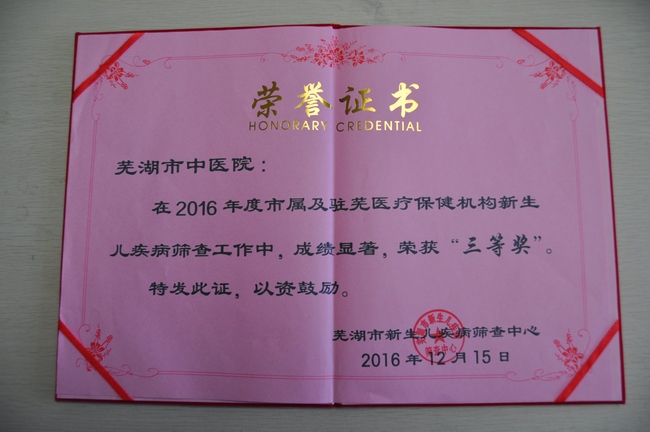 荣誉证书
HONORARY CREDENTIAL
芜湖市中医院：
在2016年度市属及驻芜医疗保健机构新生
儿疾病筛查工作中，成绩显著，荣获“三等奖”。
特发此证，以资鼓励。
芜湖市新生儿疾病筛查中心
2016年12月15日